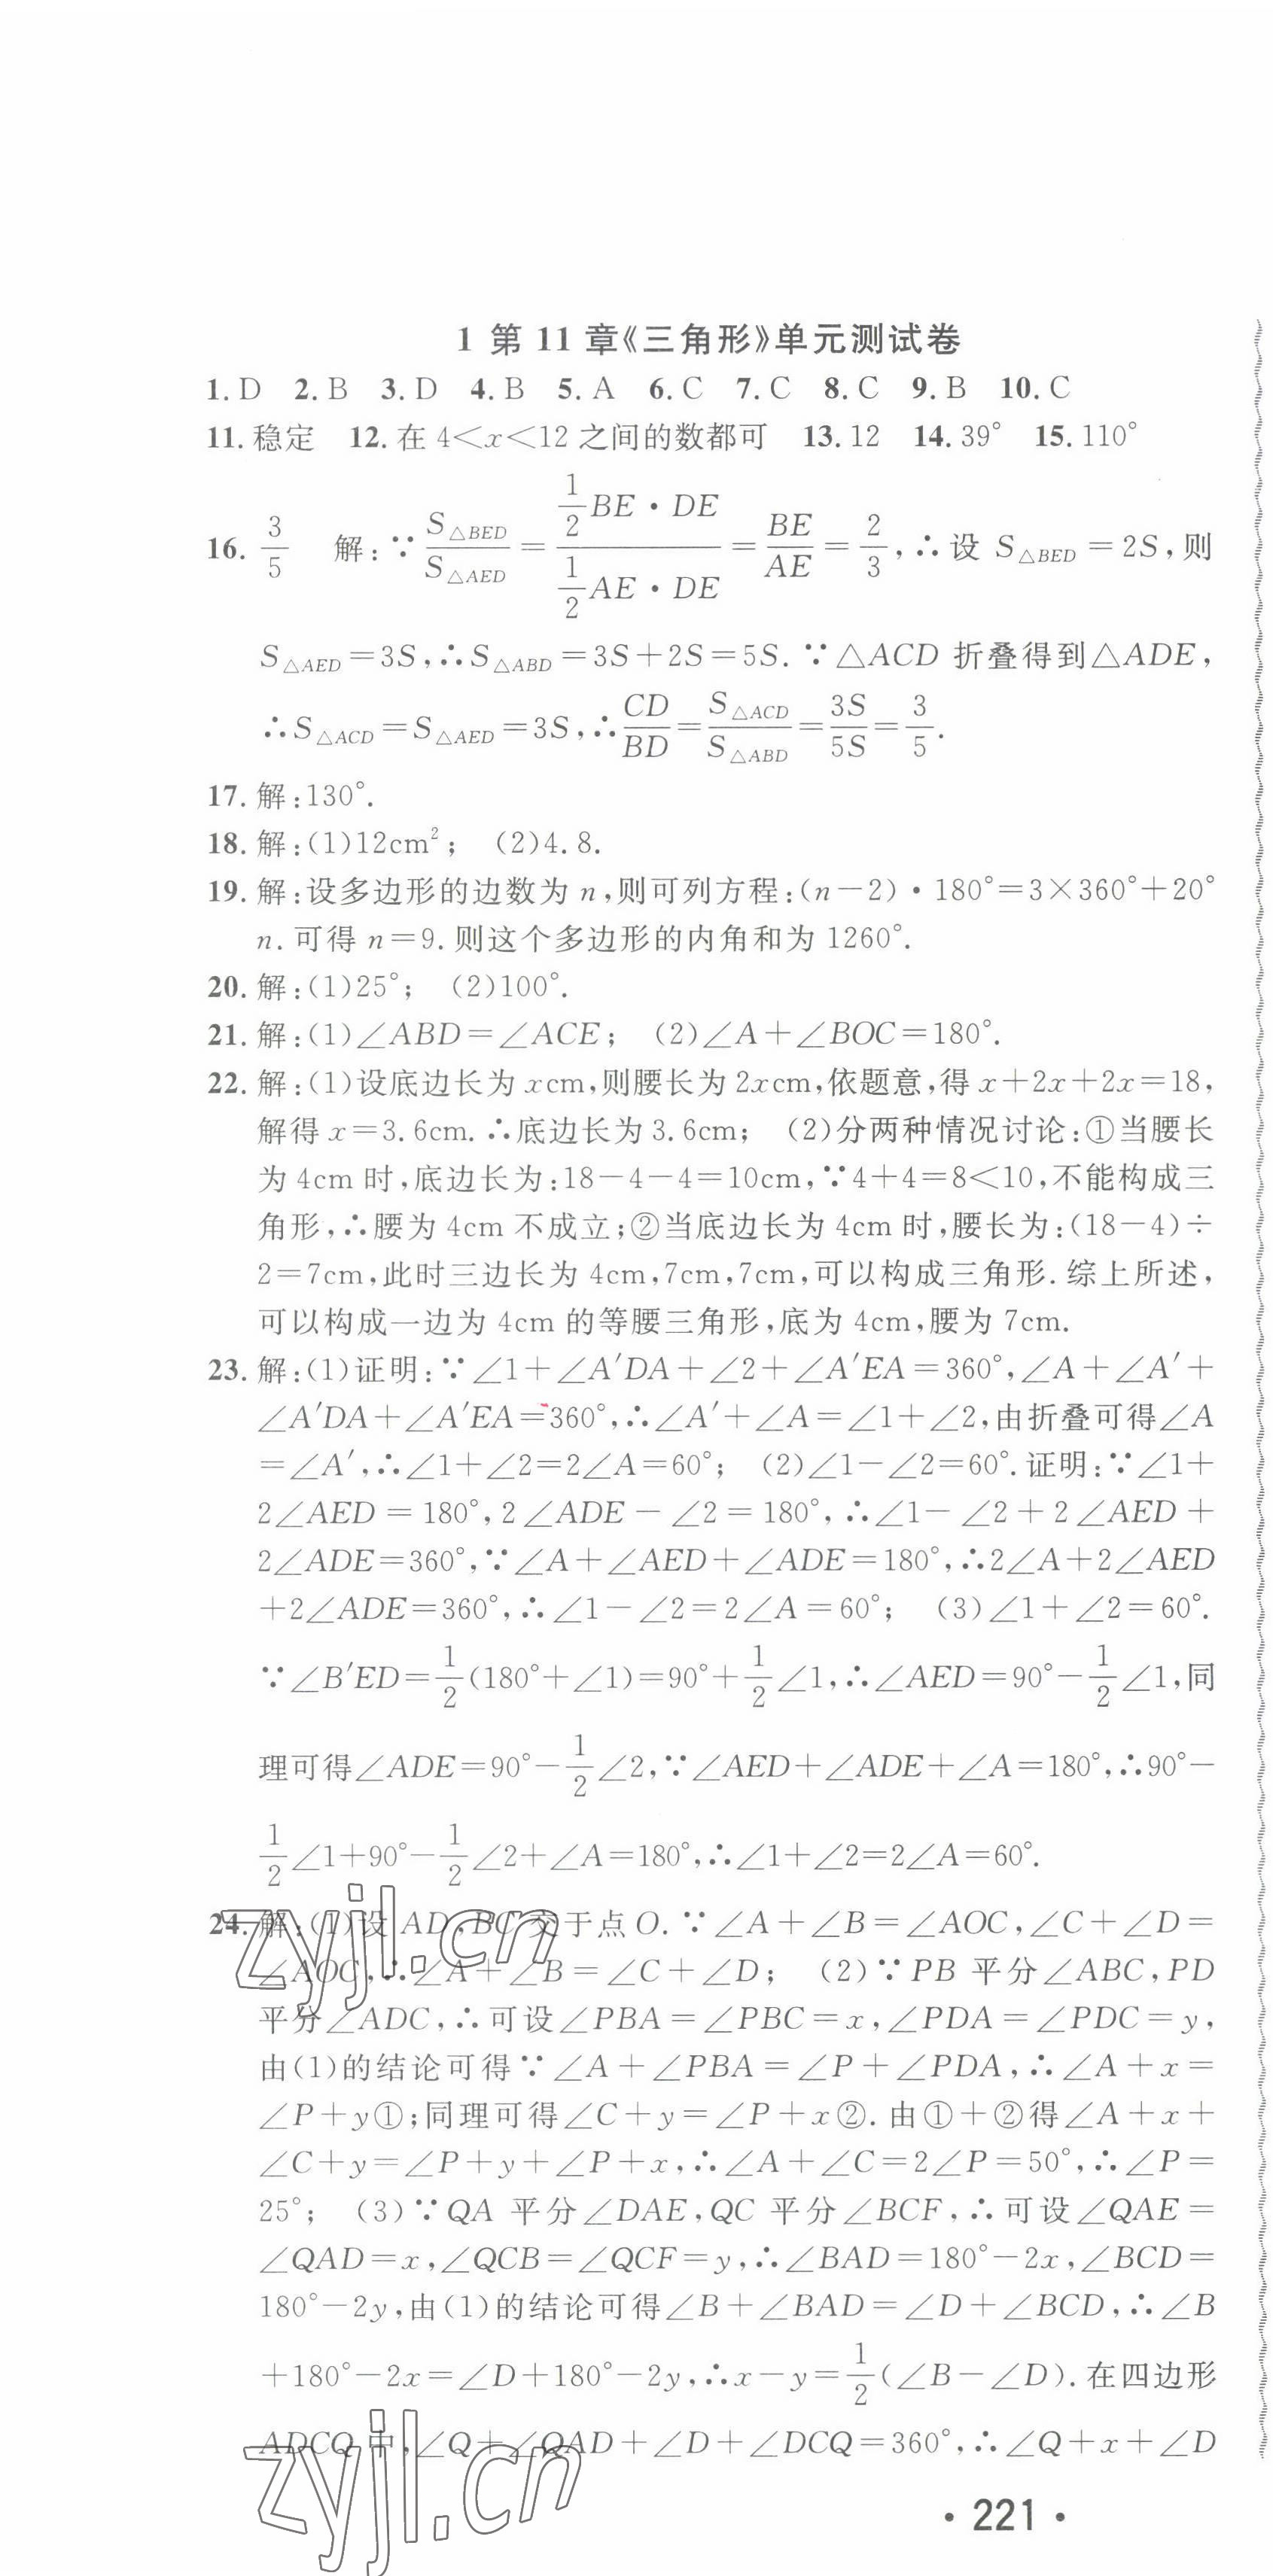 1 第 11 章《三角形》单元测试卷
1. D 2. B 3. D 4. B 5. A 6. C 7. C 8. C 9. B 10. C
11. 稳定 12. 在 4<x<12 之间的数都可 13. 12 14. 39° 15. 110°
16. 3/5 解:∵ S△BED/S△AED = (1/2 BE·DE)/(1/2 AE·DE) = BE/AE = 2/3,∴设 S△BED=2S,则
S△AED=3S,∴S△ABD=3S+2S=5S.∵△ACD 折叠得到△ADE,
∴S△ACD=S△AED=3S,∴CD/BD=S△ACD/S△ABD=3S/5S=3/5.
17. 解:130°.
18. 解:(1)12cm²; (2)4.8.
19. 解:设多边形的边数为 n,则可列方程:(n-2)·180°=3×360°+20°
n.可得 n=9.则这个多边形的内角和为 1260°.
20. 解:(1)25°; (2)100°.
21. 解:(1)∠ABD=∠ACE; (2)∠A+∠BOC=180°.
22. 解:(1)设底边长为 xcm,则腰长为 2xcm,依题意,得 x+2x+2x=18,
解得 x=3.6cm.∴底边长为 3.6cm; (2)分两种情况讨论:①当腰长
为 4cm 时,底边长为:18-4-4=10cm,∵4+4=8<10,不能构成三
角形,∴腰为 4cm 不成立;②当底边长为 4cm 时,腰长为:(18-4)÷
2=7cm,此时三边长为 4cm,7cm,7cm,可以构成三角形.综上所述,
可以构成一边为 4cm 的等腰三角形,底为 4cm,腰为 7cm.
23. 解:(1)证明:∵∠1+∠A′DA+∠2+∠A′EA=360°,∠A+∠A′+
∠A′DA+∠A′EA=360°,∴∠A′+∠A=∠1+∠2,由折叠可得∠A
=∠A′,∴∠1+∠2=2∠A=60°; (2)∠1-∠2=60°.证明:∵∠1+
2∠AED=180°,2∠ADE-∠2=180°,∴∠1-∠2+2∠AED+
2∠ADE=360°,∵∠A+∠AED+∠ADE=180°,∴2∠A+2∠AED
+2∠ADE=360°,∴∠1-∠2=2∠A=60°; (3)∠1+∠2=60°.
∵∠B′ED=1/2(180°+∠1)=90°+1/2∠1,∴∠AED=90°-1/2∠1,同
理可得∠ADE=90°-1/2∠2,∵∠AED+∠ADE+∠A=180°,∴90°-
1/2∠1+90°-1/2∠2+∠A=180°,∴∠1+∠2=2∠A=60°.
24. 解:(1)设 AD,BC 交于点 O.∵∠A+∠B=∠AOC,∠C+∠D=
∠AOC,∴∠A+∠B=∠C+∠D; (2)∵PB 平分∠ABC,PD
平分∠ADC,∴可设∠PBA=∠PBC=x,∠PDA=∠PDC=y,
由(1)的结论可得∵∠A+∠PBA=∠P+∠PDA,∴∠A+x=
∠P+y①;同理可得∠C+y=∠P+x②.由①+②得∠A+x+
∠C+y=∠P+y+∠P+x,∴∠A+∠C=2∠P=50°,∴∠P=
25°; (3)∵QA 平分∠DAE,QC 平分∠BCF,∴可设∠QAE=
∠QAD=x,∠QCB=∠QCF=y,∴∠BAD=180°-2x,∠BCD=
180°-2y,由(1)的结论可得∠B+∠BAD=∠D+∠BCD,∴∠B
+180°-2x=∠D+180°-2y,∴x-y=1/2(∠B-∠D).在四边形
ADCQ 中,∠Q+∠QAD+∠D+∠DCQ=360°,∴∠Q+x+∠D
zyjl.cn
zyjl.cn
·221·